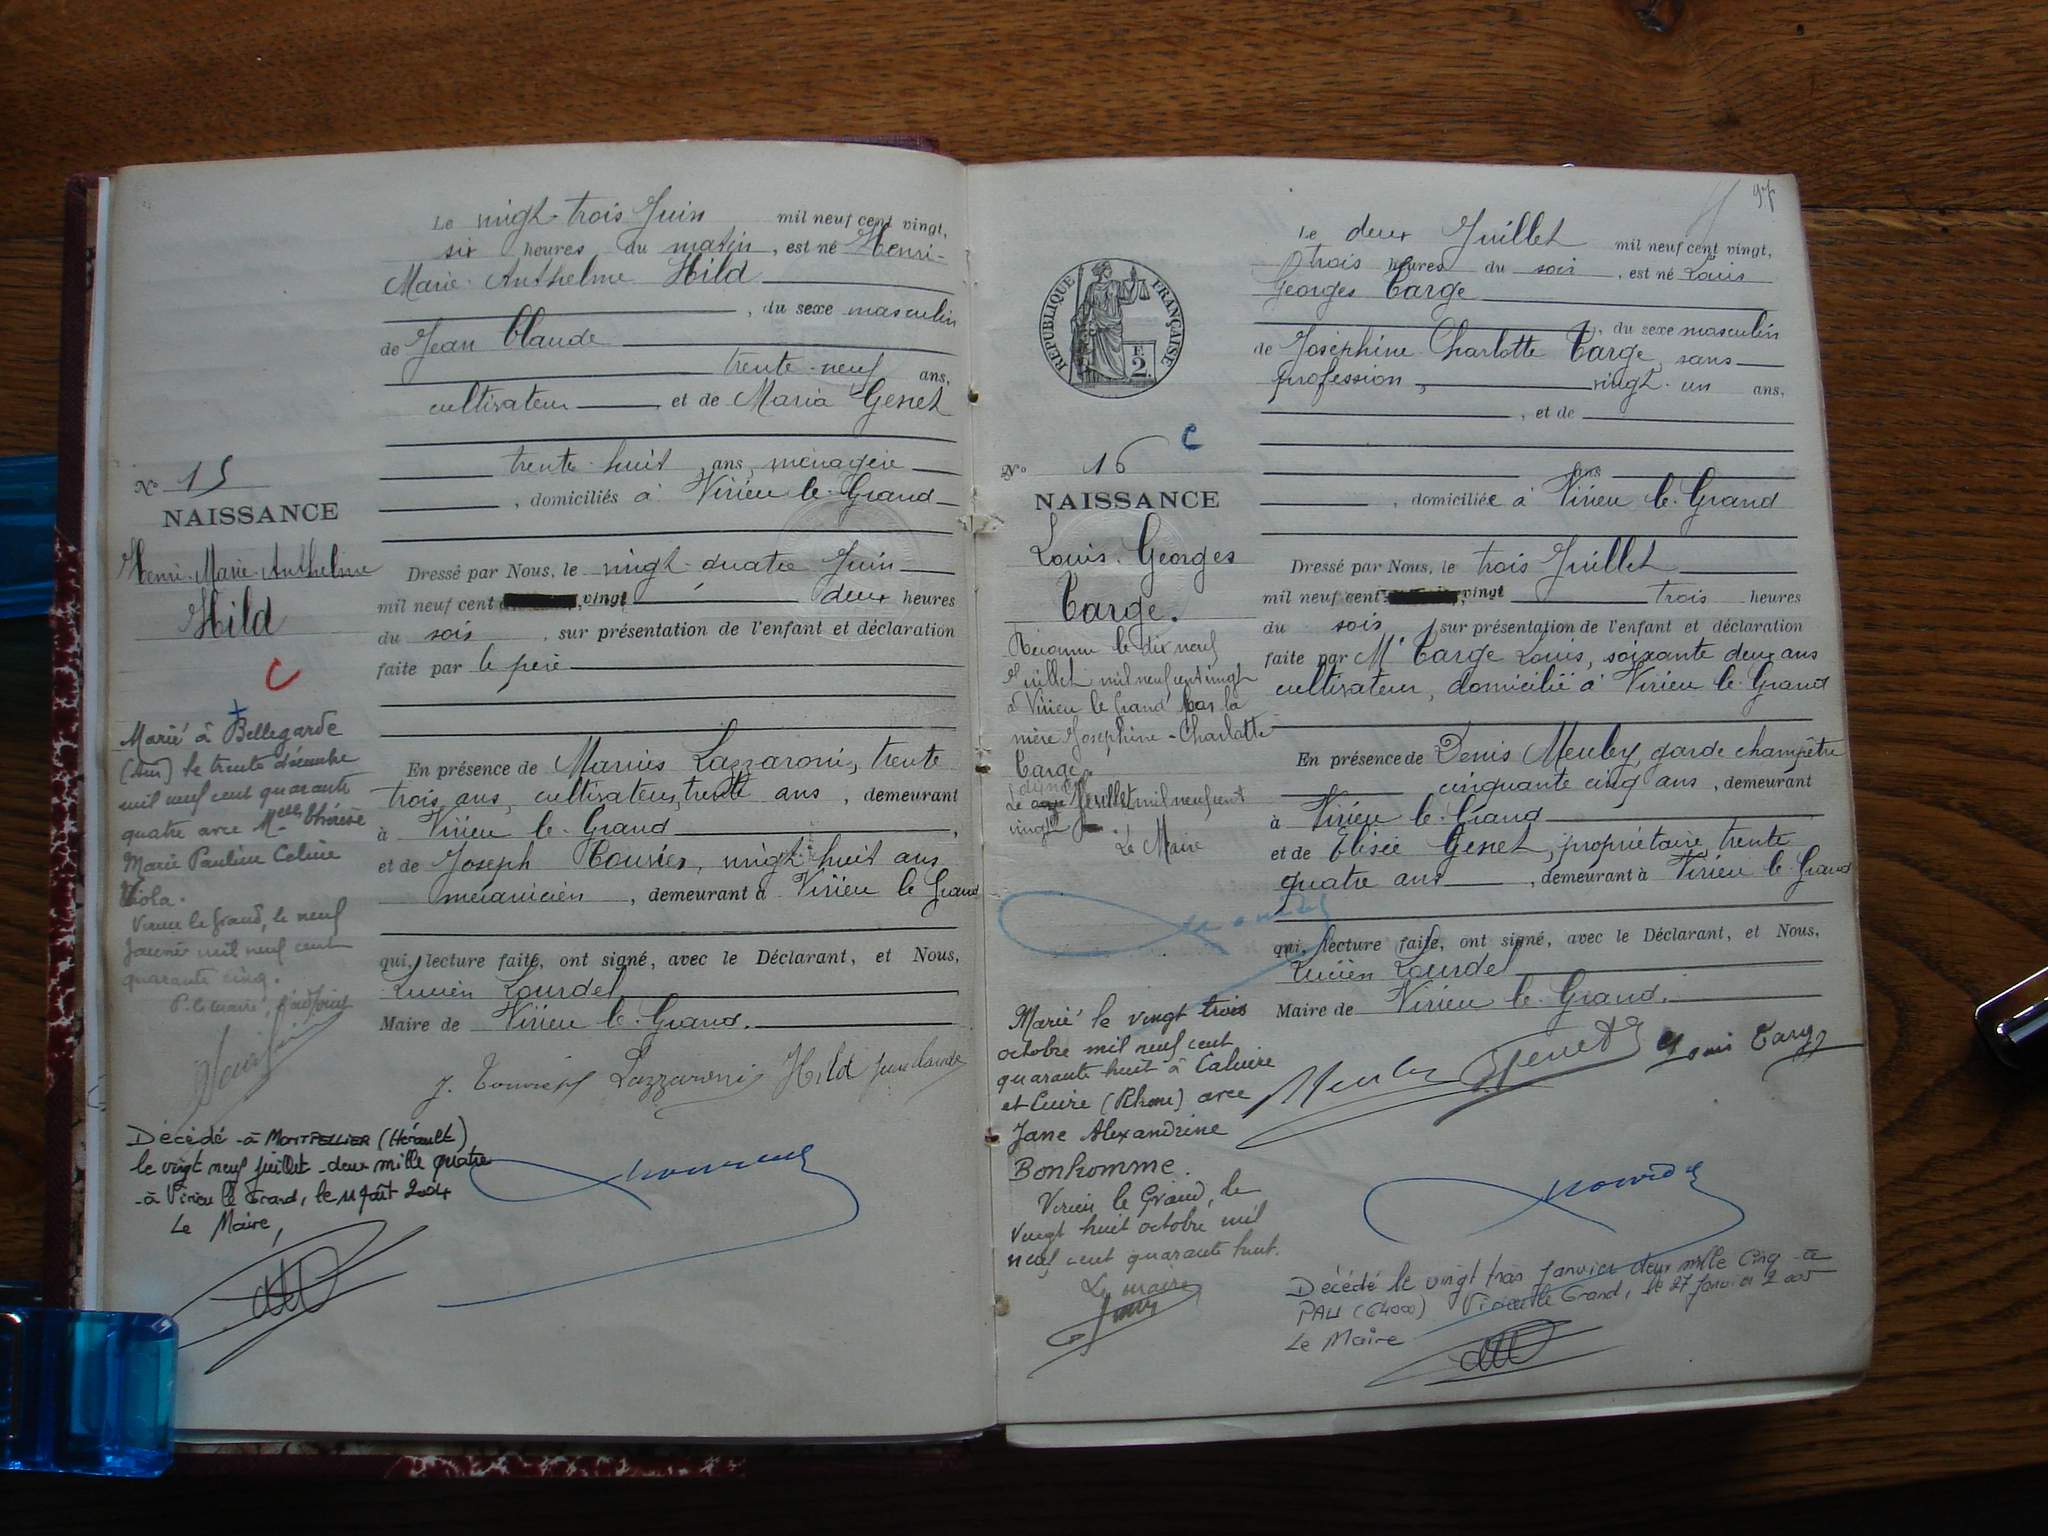 Le vingt-trois Juin mil neuf cent vingt,
six heures du matin, est né Henri-
Marie-Anthelme Hild
, du sexe masculin
de Jean Claude
trente-neuf ans,
cultivateur et de Maria Genet
trente-huit ans, ménagère
, domiciliés à Virieu-le-Grand
Dressé par Nous, le vingt-quatre Juin
mil neuf cent vingt deux heures
du soir, sur présentation de l'enfant et déclaration
faite par le père
En présence de Marius Lazzaroni, trente
trois ans, cultivateur, trente ans, demeurant
à Virieu-le-Grand,
et de Joseph vingt-huit ans
mécanicien, demeurant à Virieu le Grand
qui, lecture faite, ont signé, avec le Déclarant, et Nous,
Lucien Lourdel
Maire de Virieu-le-Grand.
J. Lazzaroni Hild Jean Claude
No 15
NAISSANCE
Henri-Marie-Anthelme
Hild
C
+
Marié à Bellegarde
(Ain) le trente décembre
mil neuf cent quarante
quatre avec Melle Thérèse
Marie Pauline Celine
Virieu le Grand, le neuf
Janvier mil neuf cent
quarante cinq.
P. le maire,
Décédé à MONTPELLIER (Hérault)
le vingt neuf juillet deux mille quatre
à Virieu le Grand, le 11 Août 2004
Le Maire,
97
Le deux Juillet mil neuf cent vingt,
trois heures du soir, est né Louis
Georges Targe
, du sexe masculin
de Joséphine Charlotte Targe, sans
profession, vingt-un ans,
, et de
ans
, domiciliée à Virieu-le-Grand
Dressé par Nous, le trois Juillet
mil neuf cent vingt trois heures
du soir, sur présentation de l'enfant et déclaration
faite par Mr Targe Louis, soixante deux ans
cultivateur, domicilié à Virieu le Grand
En présence de Denis Meuley, garde champêtre
cinquante cinq ans, demeurant
à Virieu-le-Grand
et de Elisée Genet, propriétaire, trente
quatre ans, demeurant à Virieu le Grand
qui, lecture faite, ont signé, avec le Déclarant, et Nous,
Lucien Lourdel
Maire de Virieu-le-Grand.
Meuley Genet E Louis Targe
RÉPUBLIQUE FRANÇAISE
F.
2.
C
No 16
NAISSANCE
Louis-Georges
Targe.
Reconnu le dix neuf
Juillet mil neuf cent vingt
à Virieu le Grand par la
mère Joséphine-Charlotte
Targe.
Le Juillet mil neuf cent
vingt
Le Maire
Marié le vingt trois
octobre mil neuf cent
quarante huit à Caluire
et Cuire (Rhône) avec
Jane Alexandrine
Bonhomme.
Virieu le Grand, le
vingt huit octobre mil
neuf cent quarante huit.
Le maire
Décédé le vingt trois Janvier deux mille cinq à
PAU (64000) Virieu le Grand, le 27 Janvier 2005
Le Maire